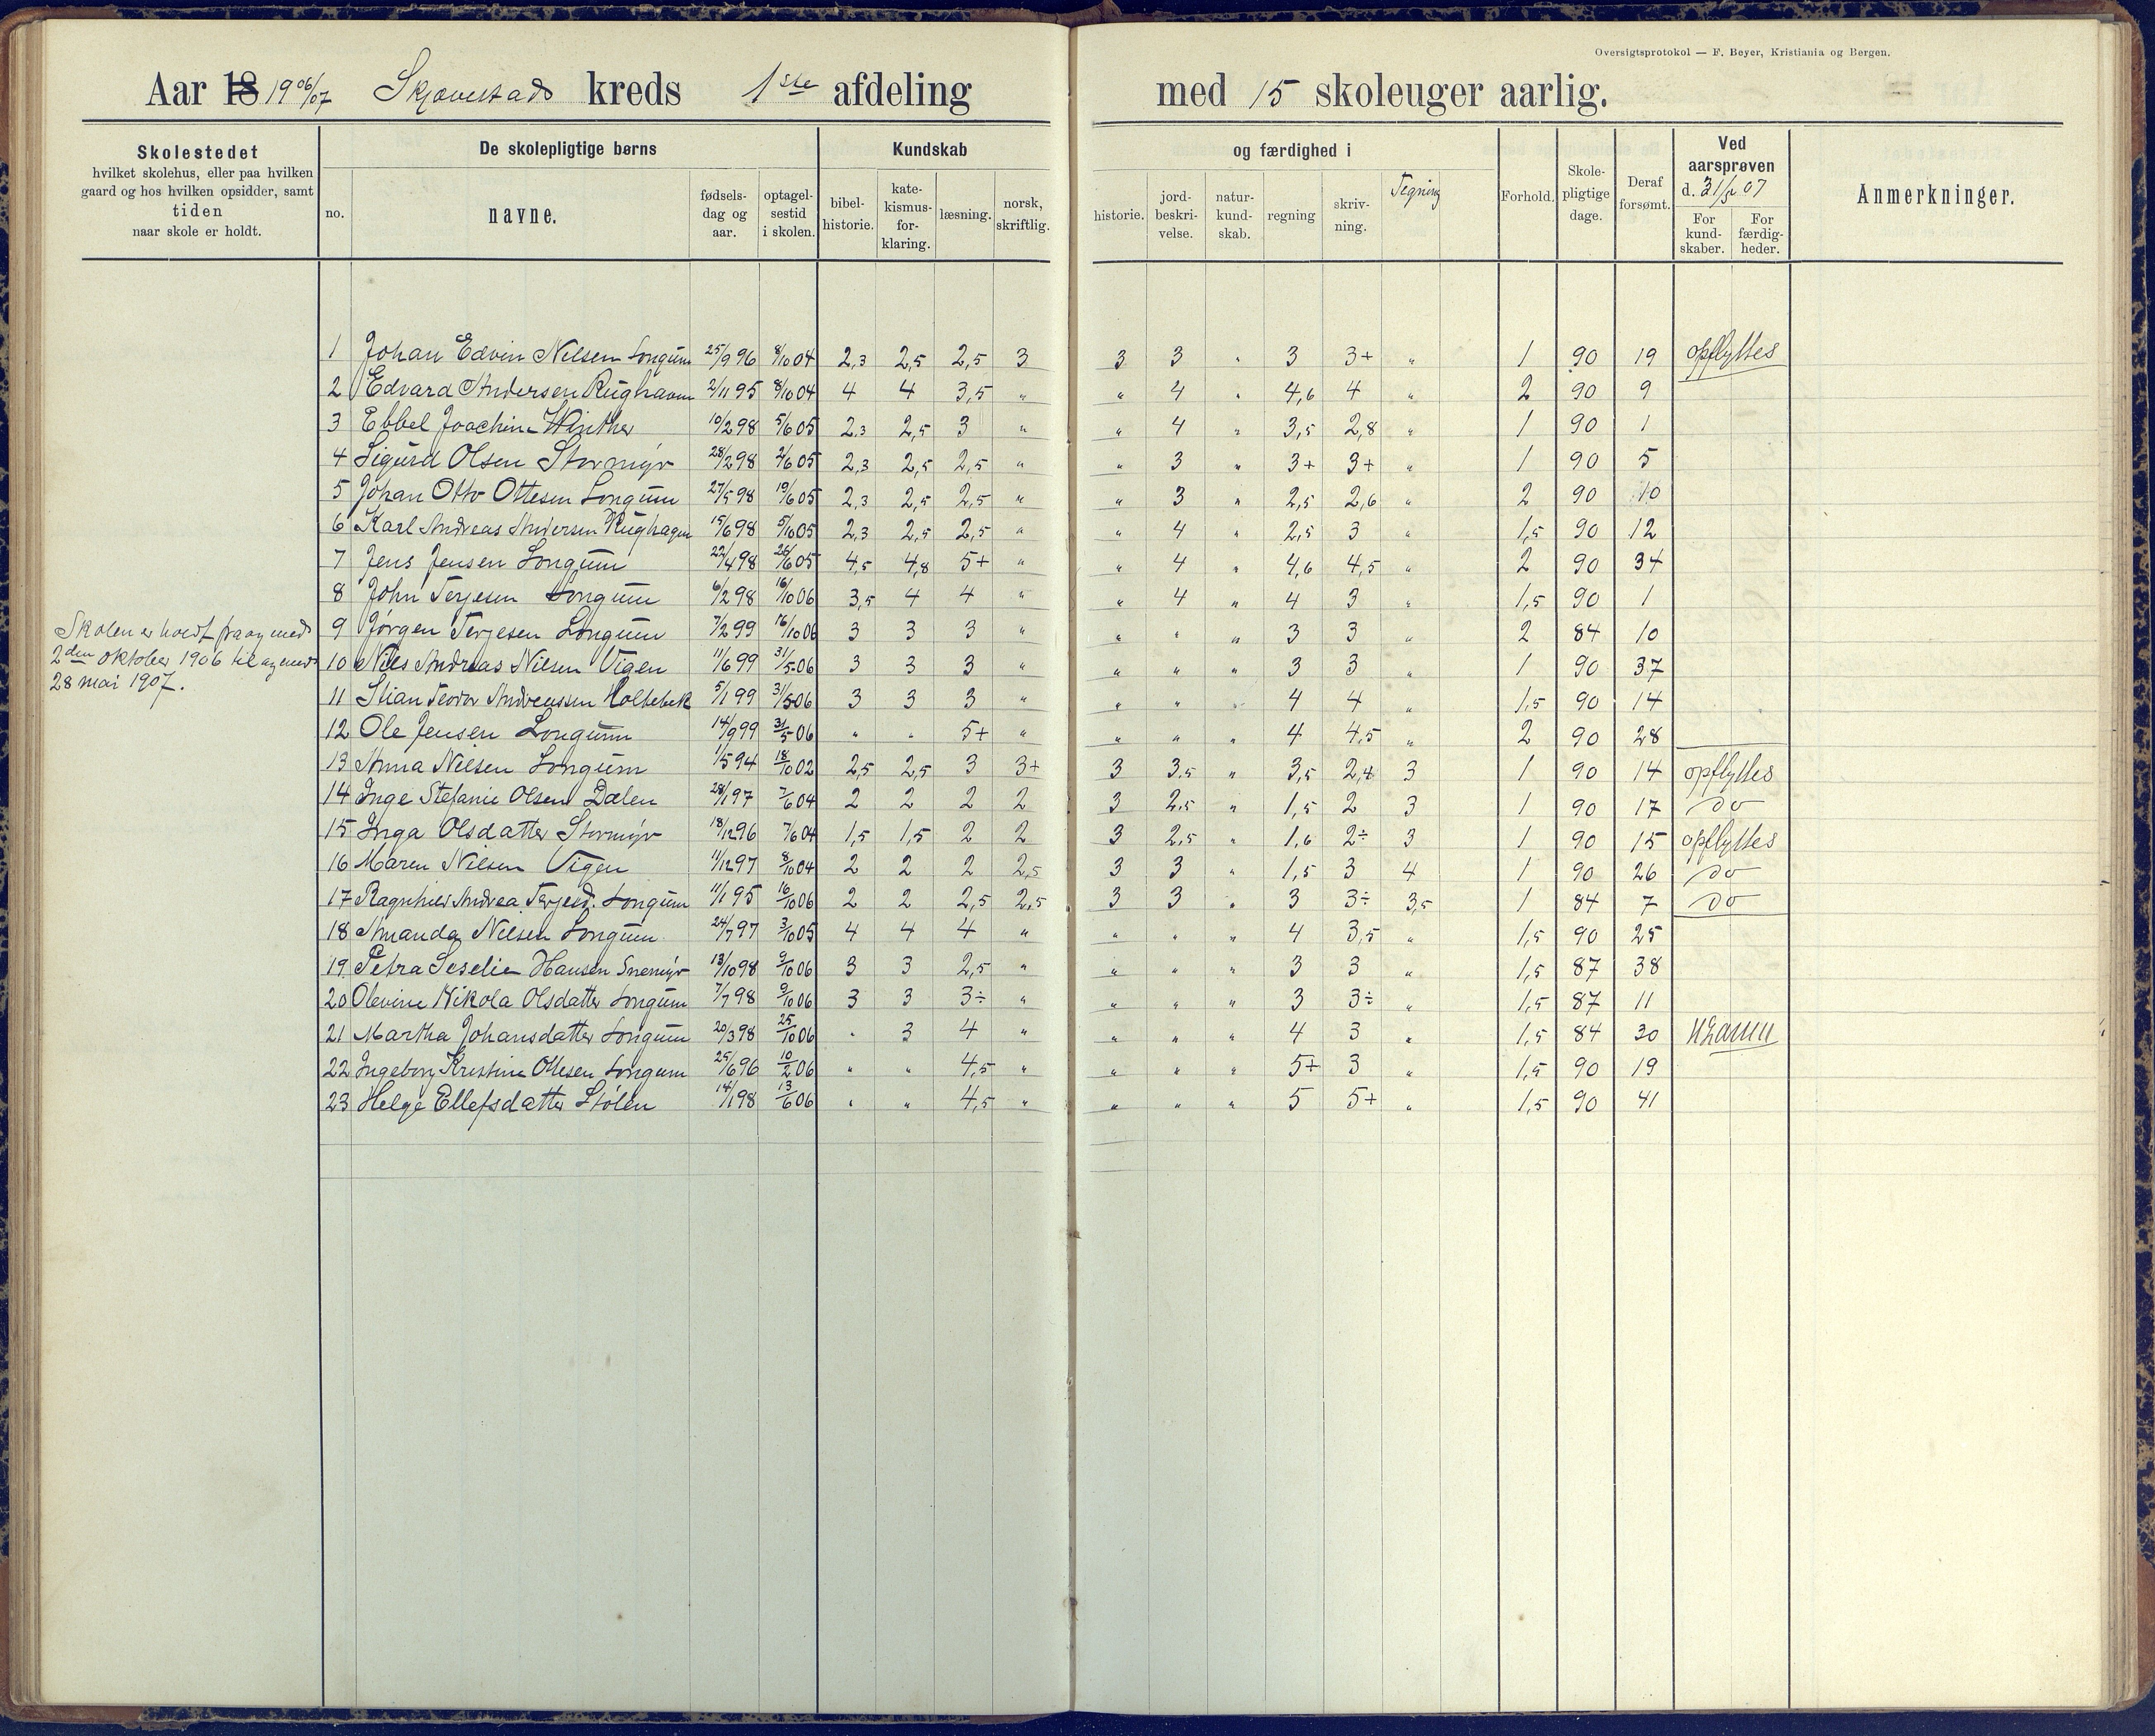 Oversigtsprotokol — F. Beyer, Kristiania og Bergen.
Aar 18 1906/07 Skjævestads kreds 1ste afdeling med 15 skoleuger aarlig.
Skolestedet hvilket skolehus, eller paa hvilken gaard og hos hvilken opsidder, samt tiden naar skole er holdt.
De skolepligtige børns
no. navne. fødselsdag og aar. optagelsestid i skolen.
Kundskab og færdighed i
bibelhistorie. katekismusforklaring. læsning. norsk, skriftlig. historie. jordbeskrivelse. naturkundskab. regning skrivning. Tegning
Forhold. Skolepligtige dage. Deraf forsømt.
Ved aarsprøven d. 31/5 07
For kundskaber. For færdigheder.
Anmerkninger.
1 Johan Edvin Nilsen Longum 25/9 96 8/10 04 2,3 2,5 2,5 3 3 3 " 3 3+ " 1 90 19 opflyttes
2 Edvard Andersen Rughaven 2/11 95 8/10 04 4 4 3,5 " " 4 " 4,6 4 " 2 90 9
3 Ebbel Joachim Winther 10/2 98 5/6 05 2,3 2,5 3 " " 4 " 3,5 2,8 " 1 90 1
4 Sigurd Olsen Stormyr 28/2 98 2/6 05 2,3 2,5 2,5 " " 3 " 3+ 3+ " 1 90 5
5 Johan Otto Ottesen Longum 27/5 98 19/6 05 2,3 2,5 2,5 " " 3 " 2,5 2,6 " 2 90 10
6 Karl Andreas Andersen Rughagen 15/6 98 5/10 05 2,3 2,5 2,5 " " 4 " 2,5 3 " 1,5 90 12
7 Jens Jensen Longum 22/4 98 26/6 05 4,5 4,8 5+ " " 4 " 4,6 4,5 " 2 90 34
8 John Terjesen Longum 6/2 98 16/10 06 3,5 4 4 " " 4 " 4 3 " 1,5 90 1
9 Jørgen Terjesen Longum 7/2 99 16/10 06 3 3 3 " " " " 3 3 " 2 84 10
Skolen er holdt fra og med
2den oktober 1906 til og med
28 mai 1907.
10 Nils Andreas Nilsen Vigen 11/6 99 31/5 06 3 3 3 " " " " 3 3 " 1 90 37
11 Stian Teodor Andreassen Holtebek 5/1 99 31/5 06 3 3 3 " " " " 4 4 " 1,5 90 14
12 Ole Jensen Longum 14/9 99 31/5 06 " " 5+ " " " " 4 4,5 " 2 90 28
13 Anna Nilsen Longum 1/5 94 18/10 02 2,5 2,5 3 3+ 3 3,5 " 3,5 2,4 3 1 90 14 opflyttes
14 Inge Stefanie Olsen Dalen 28/1 97 7/6 04 2 2 2 2 3 2,5 " 1,5 2 3 1 90 17 do
15 Inga Olsdatter Stormyr 18/12 96 7/6 04 1,5 1,5 2 2 3 2,5 " 1,6 2÷ 3 1 90 15 opflyttes
16 Maren Nilsen Vigen 11/12 97 8/10 04 2 2 2 2,5 3 3 " 1,5 3 4 1 90 26 do
17 Ragnhild Andrea Terjesd. Longum 11/1 95 16/10 06 2 2 2,5 2,5 3 3 " 3 3÷ 3,5 1 84 7 do
18 Amanda Nilsen Longum 24/7 97 3/10 05 4 4 4 " " " " 4 3,5 " 1,5 90 25
19 Petra Seselie Hansen Snemyr 13/10 98 9/10 06 3 3 2,5 " " " " 3 3 " 1,5 87 38
20 Olevine Nikola Olsdatter Longum 7/7 98 9/10 06 3 3 3÷ " " " " 3 3÷ " 1,5 87 11
21 Martha Johansdatter Longum 20/3 98 25/10 06 " 3 4 " " " " 4 3 " 1,5 84 30
22 Ingeborg Kristine Ottesen Longum 25/6 96 10/2 06 " " 4,5 " " " " 5+ 3 " 1,5 90 19
23 Helge Ellefsdatter Stølen 14/1 98 13/6 06 " " 4,5 " " " " 5 5+ " 1,5 90 41